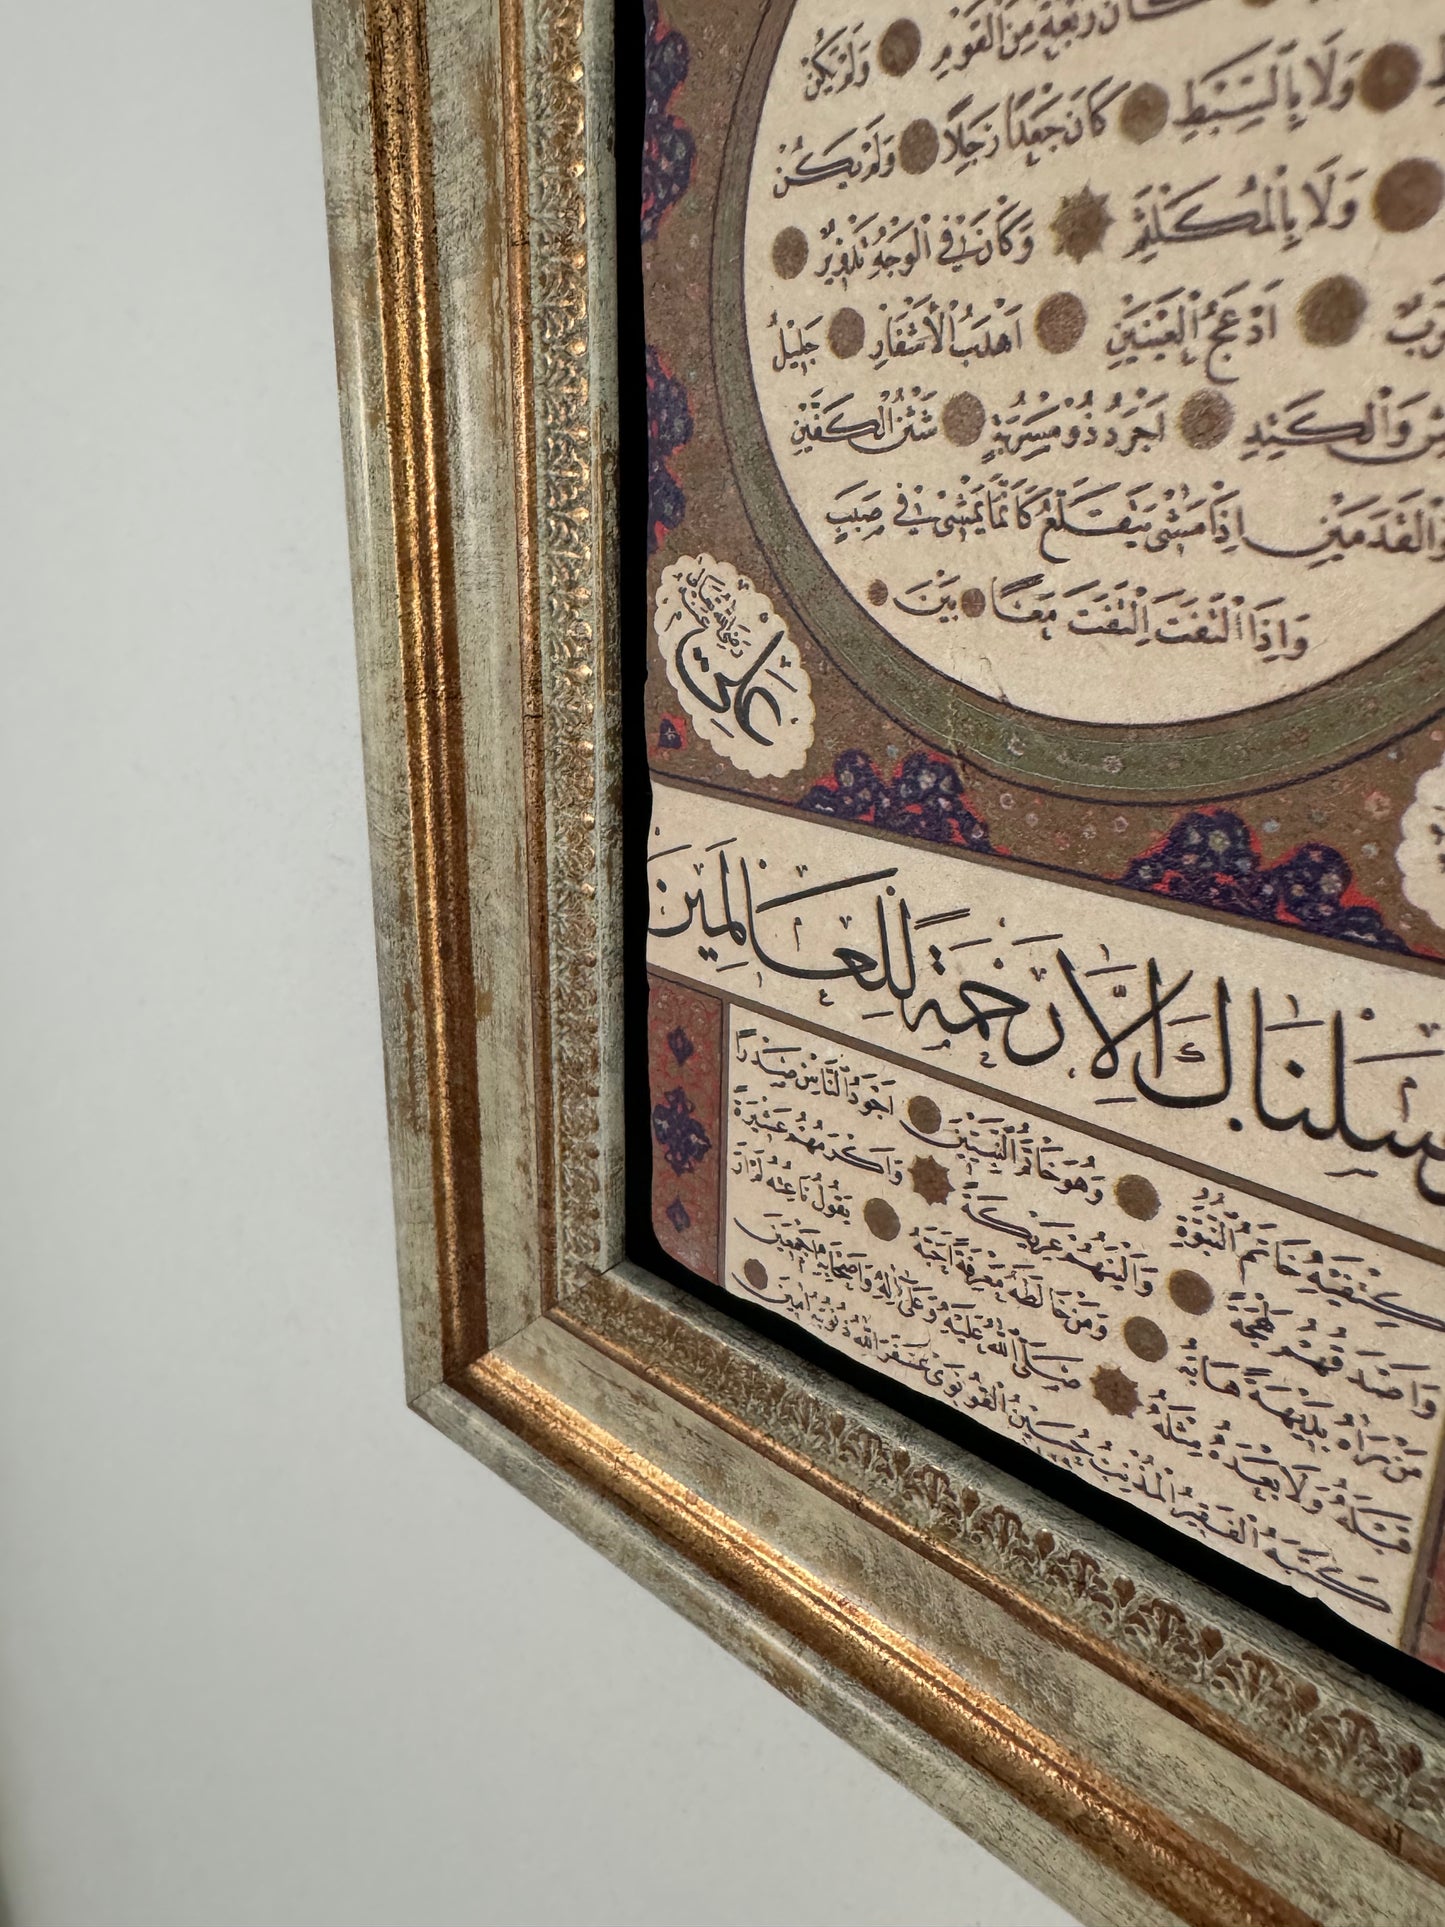 كَانَ رَبْعَةً مِنَ الْقَوْمِ وَلَمْ يَكُنْ
وَلَا بِالسَّبِطِ كَانَ جَعْدًا رَجِلًا وَلَمْ يَكُنْ
وَلَا بِالْمُكَلْثَمِ وَكَانَ فِي الْوَجْهِ تَدْوِيرٌ
اَدْعَجُ الْعَيْنَيْنِ اَهْدَبُ الْاَشْفَارِ جَلِيلُ
وَالْكَتِدِ اَجْرَدُ ذُو مَسْرُبَةٍ شَثْنُ الْكَفَّيْنِ
وَالْقَدَمَيْنِ اِذَا مَشٰى يَتَقَلَّعُ كَاَنَّمَا يَمْشِي فِي صَبَبٍ
وَاِذَا الْتَفَتَ اِلْتَفَتَ مَعًا بَيْنَ
علي رضي الله عنه
سلناك الا رحمة للعالمين
كَتِفَيْهِ خَاتَمُ النُّبُوَّةِ وَهُوَ خَاتَمُ النَّبِيِّينَ اَجْوَدُ النَّاسِ صَدْرًا
وَاَصْدَقُهُمْ لَهْجَةً وَاَلْيَنُهُمْ عَرِيكَةً وَاَكْرَمُهُمْ عَشِيرَةً
مَنْ رَاٰهُ بَدِيهَةً هَابَهُ وَمَنْ خَالَطَهُ مَعْرِفَةً اَحَبَّهُ يَقُولُ نَاعِتُهُ لَمْ اَرَ
قَبْلَهُ وَلَا بَعْدَهُ مِثْلَهُ صَلَّى اللّٰهُ عَلَيْهِ وَعَلٰى اٰلِهِ وَاَصْحَابِهِ اَجْمَعِينَ
كَتَبَهُ الْفَقِيرُ الْمُذْنِبُ حُسَيْنُ الْقُونَوِيُّ غَفَرَ اللّٰهُ ذُنُوبَهُ اٰمِينَ